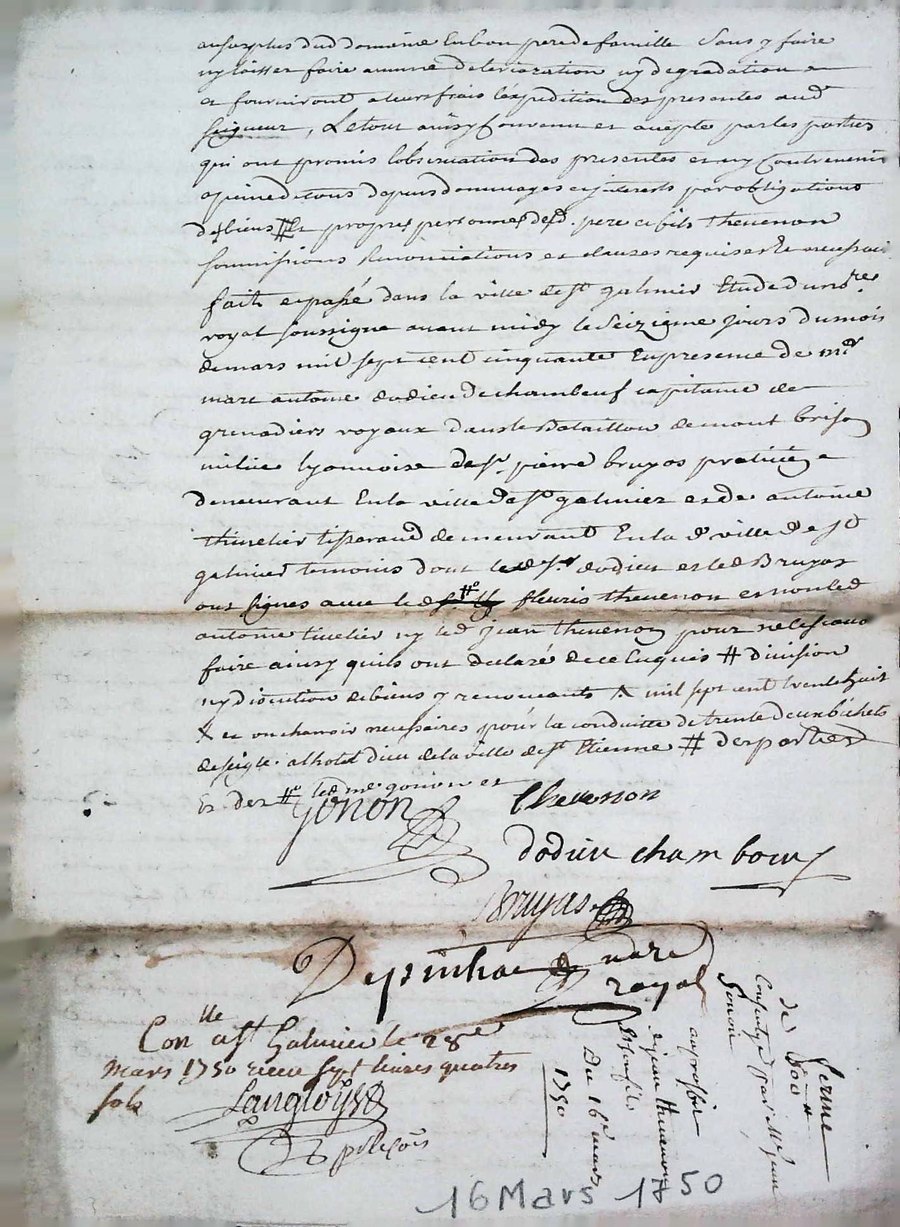 au surplus dud domaine En bon pere de famille Sans y faire
ny laisser faire aucune deterioration ny degradation
et fourniront a leurs frais l'expedition des presentes aud
seigneur, Le tout ainsy Convenu et accepte par les parties
qui ont promis l'observation des presentes et ny Contrevenir
a peine de tous depens dommages et interests par obligations
de biens # Et propres personnes desd. pere et fils thevenon
soumissions Renonciations et clauses requises Et necessai
fait et passé dans la ville de st galmier Etude du nre
royal soussigne avant midy le Seizieme jours du mois
de mars mil sept cent cinquante En presence de mre
marc antoine dodieu de chambeuf capitaine de
grenadiers royaux dans le Bataillon de mont brison
milice lyonnoise de sr. pierre bruyas praticien
demeurant En la ville de st galmier et de antoine
thivelier tisserand demeurant En lad ville de st
galmier temoins dont led sr. dodieu et led Bruyas
ont signes avec led # fleuris thevenon et non led
antoine tivelier ny led jean thevenon pour ne le scavoir
faire ainsy quils ont declaré de ce Enquis # division
ny discution de biens y renoncants X mil sept cent trente huit
X et un charroir necessaires pour la conduitte de trente deux bichets
de seigle a lhotel dieu de la ville de st Etienne # desparties
Et des # led me gonon et
Gonon
thevenon
dodieu chambeuf
Bruyas
Depinhac nore
royal
Conlle a st Galmier le 28e
Mars 1750 receu sept livres quatres
sols
Langloys
ferme
de
Consentye par Mr Jean
Gonon
au profit
de jean thevenon
et son fils
Du 16e mars
1750
16 Mars 1750